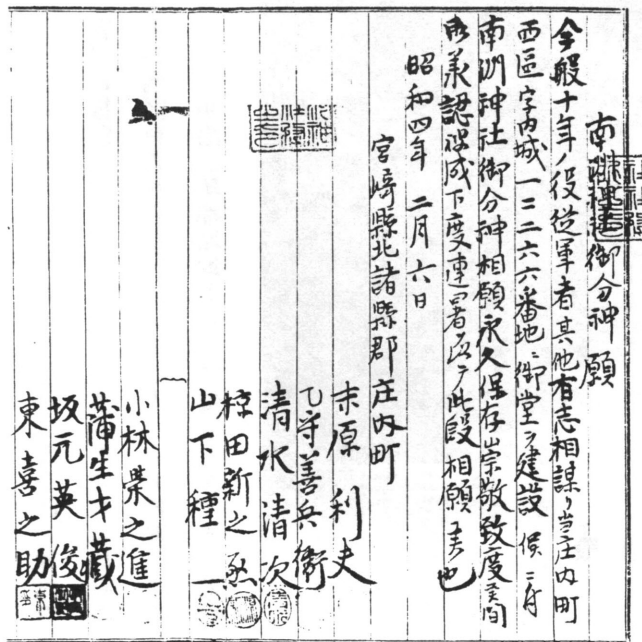 南洲神社御分神願
今般十年ノ役従軍者其他有志相謀リ当庄内町
西區字内城一二二六六番地ニ御堂ヲ建設候ニ付
南洲神社御分神相願永久保存崇敬致度候間
御承認被成下度連署ヲ以テ此段相願候也
昭和四年二月六日
宮崎縣北諸縣郡庄内町
末原利夫
乙守善兵衛
清水清次
椋田新之丞
山下種一
小林栄之進
蒲生才藏
坂元英俊
東喜之助